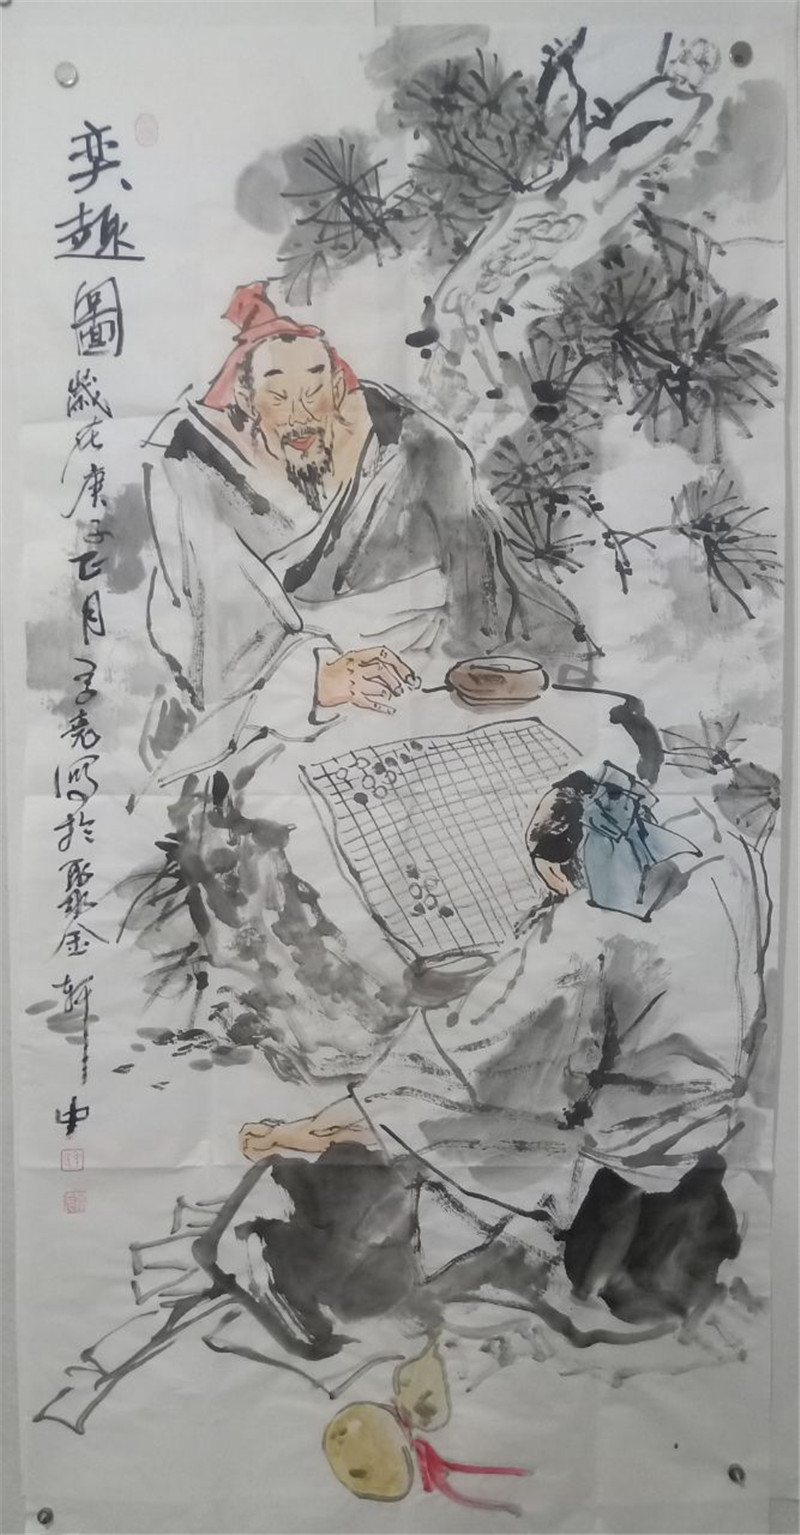 奕趣圖歲在庚子正月子亮寫於聚金軒中